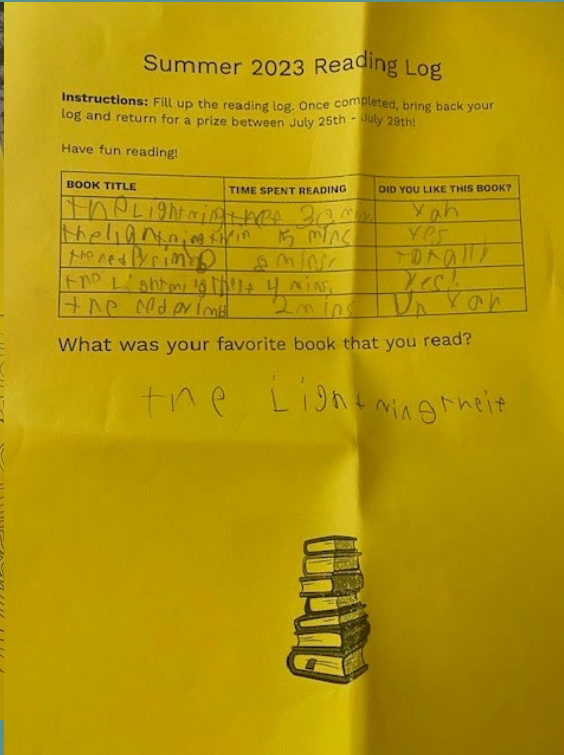 Summer 2023 Reading Log
Instructions: Fill up the reading log. Once completed, bring back your
log and return for a prize between July 25th - July 29th!
Have fun reading!
BOOK TITLE TIME SPENT READING DID YOU LIKE THIS BOOK?
the Lightning 30 Yah
the lightning 15 mins yes
the mins totally
the 4 mins, Yes!
the 2 mins Yah
What was your favorite book that you read?
the Lightning theif